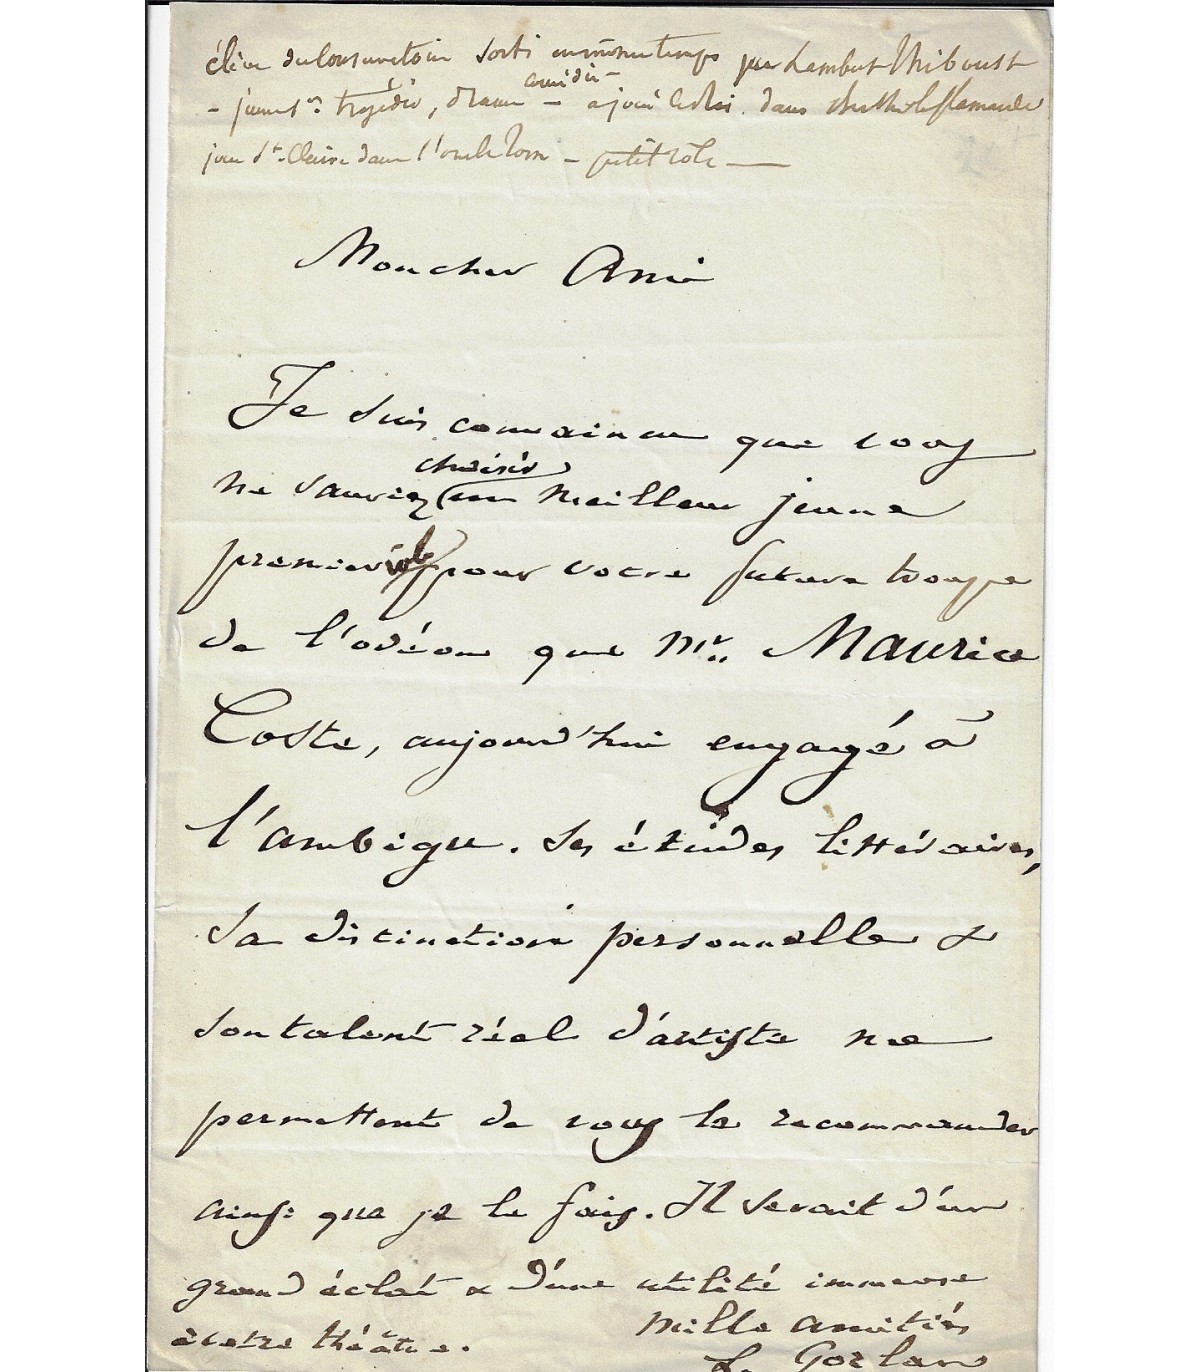 élève du Conservatoire sorti en même temps que Lambert Thiboust
comédie
- jeune 1er tragédie, drame - a joué le Roi dans Berthe la flamande
joue St. Claire dans l'oncle Tom - petit rôle
Mon cher Ami
Je suis convaincu que vous
choisir
ne sauriez un meilleur jeune
premier rôle pour votre future troupe
de l'odéon que Mr. Maurice
Coste, aujourd'hui engagé à
l'ambigu. Ses études littéraires,
Sa distinction personnelle &
son talent réel d'artiste me
permettent de vous le recommander
ainsi que je le fais. Il serait d'un
grand éclat & d'une utilité immense
à votre théâtre.
Mille amitiés
L. Gozlan